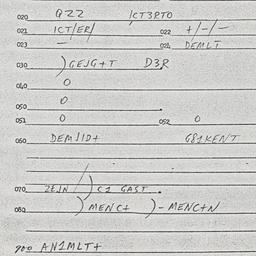 020 QZZ ICT3PTO
021 ICT/ER/ 022 +/-/-
023 - 024 DEMLT
030 )GEJG+T D3R
040 0
050 0
051 0 052 0
060 DEMJID+ G81KENT
070 ZEJN /)C1 GAST
080 )MENC+ )-MENC+N
900 AN1MLT+